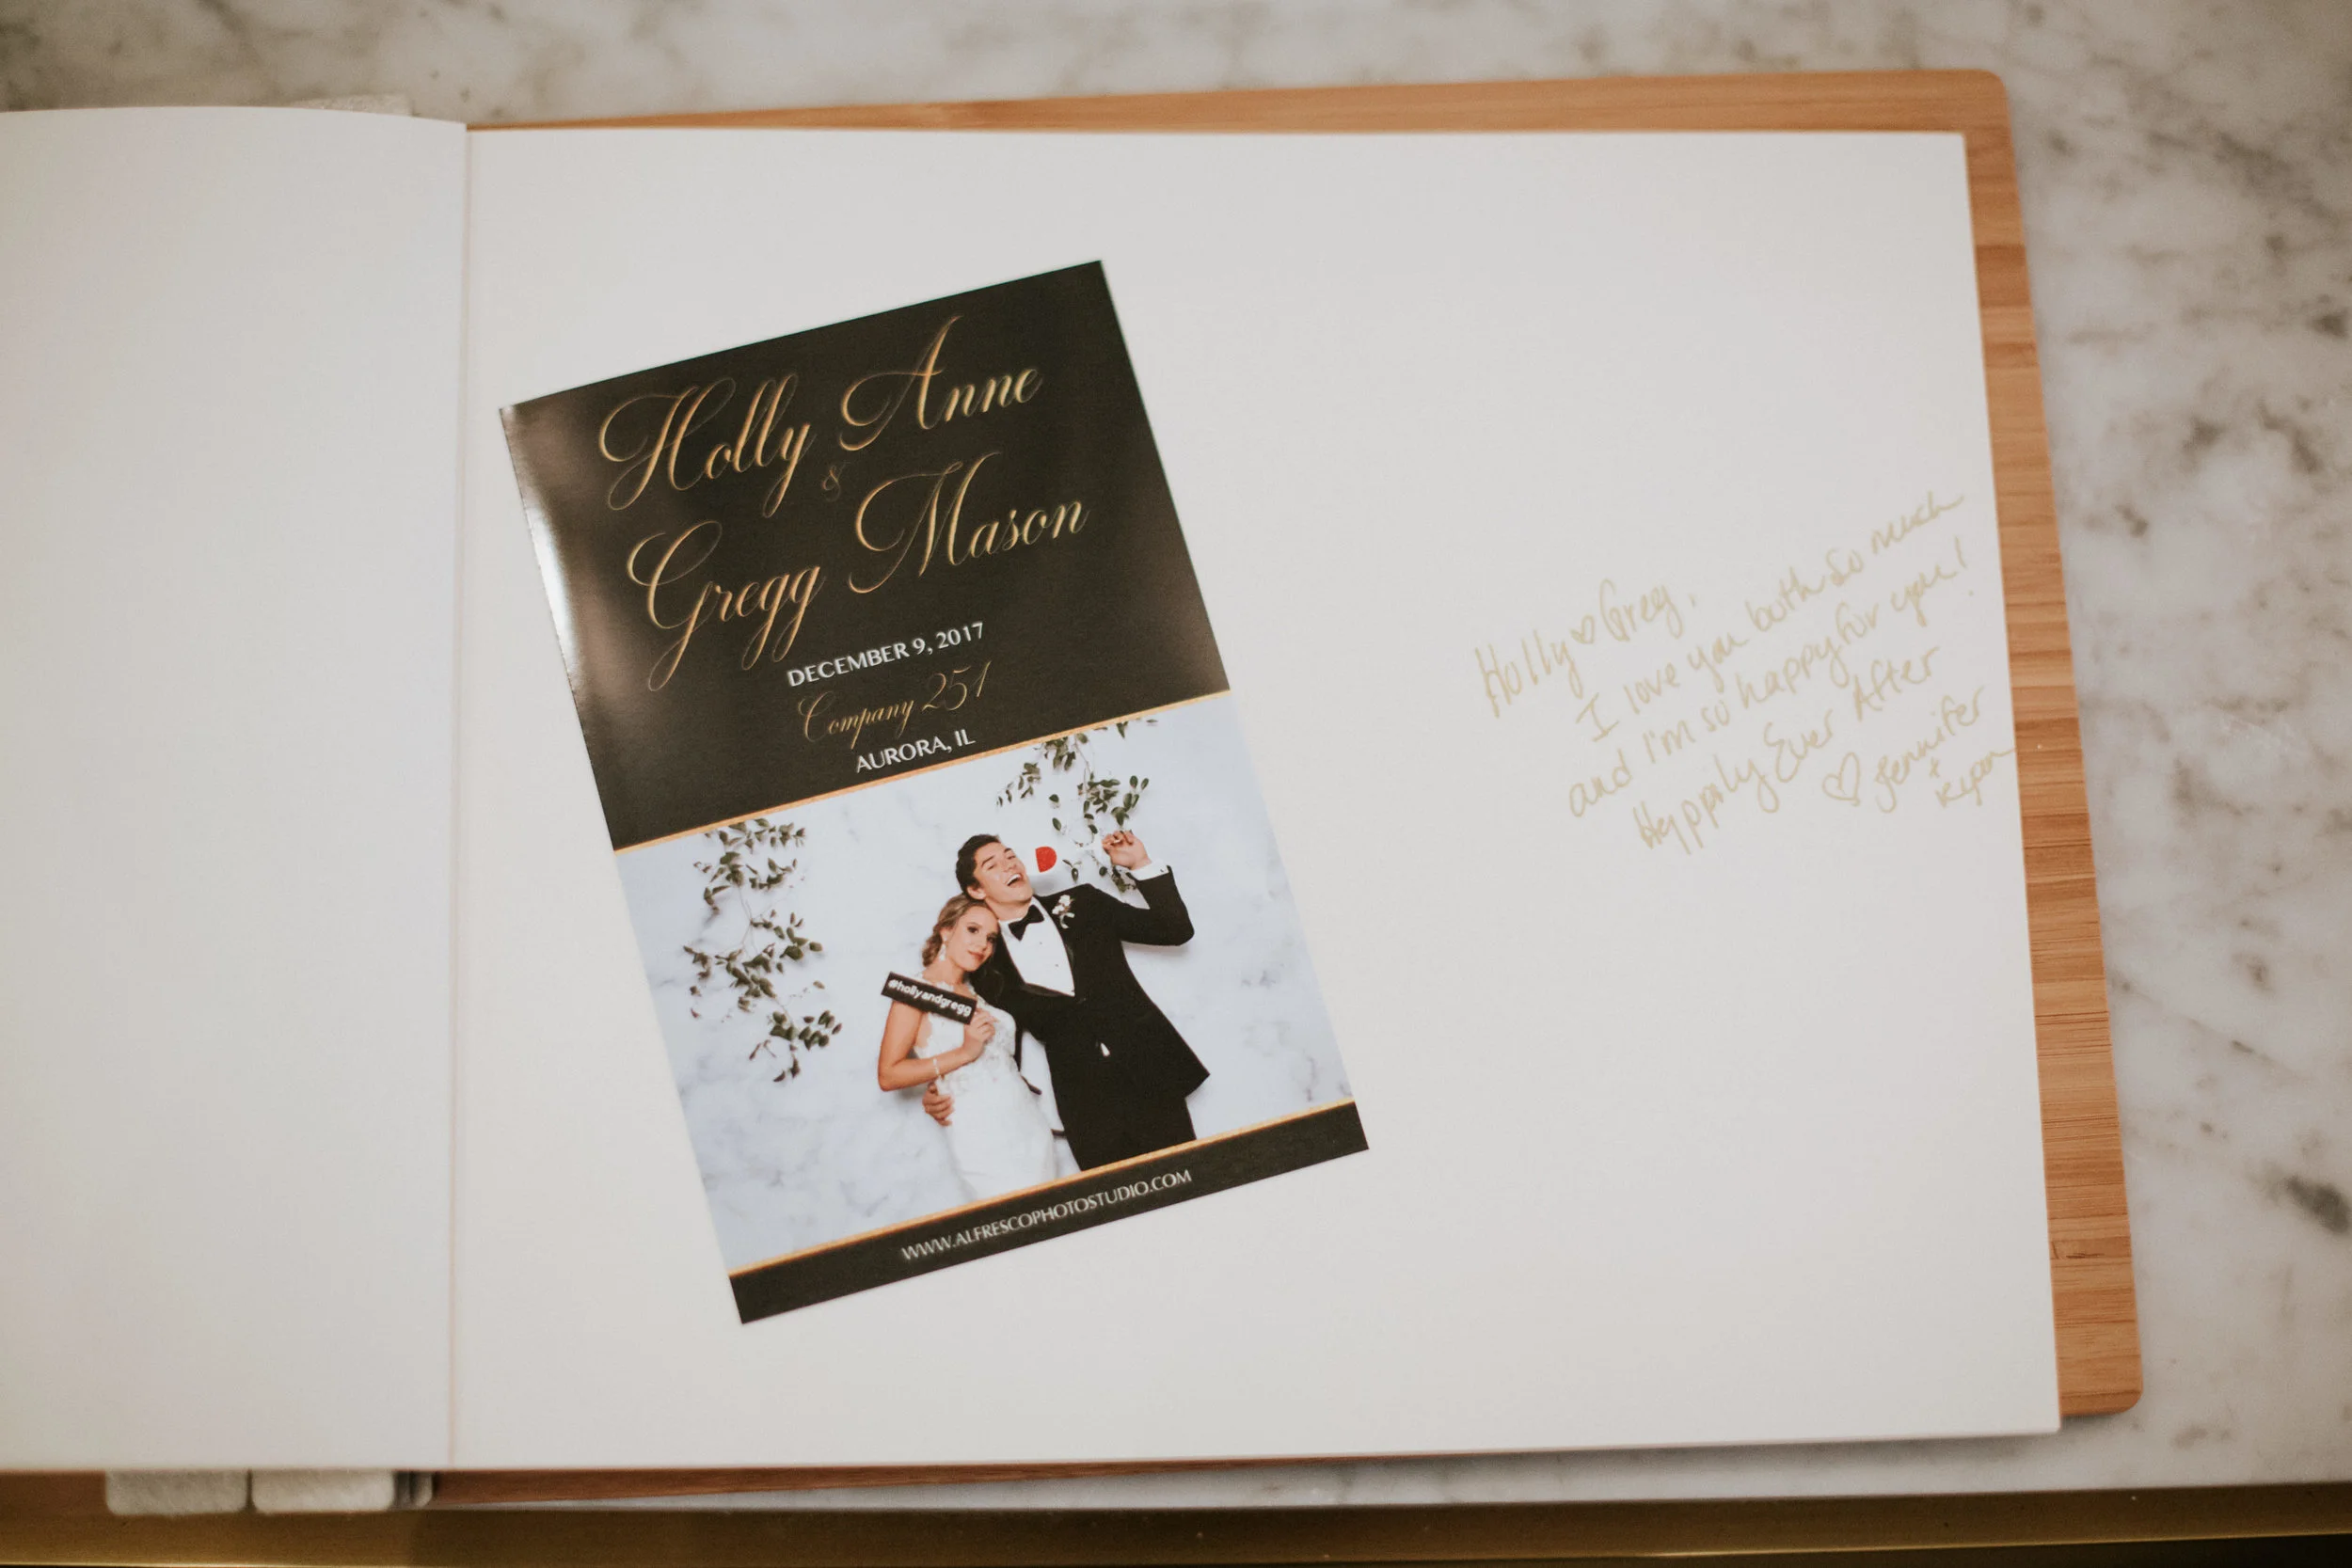 Holly Anne
&
Gregg Mason
DECEMBER 9, 2017
Company 251
AURORA, IL
@hollyandgregg
WWW.ALFRESCOPHOTOSTUDIO.COM
Holly ♡ Greg,
I love you both so much
and I'm so happy for you!
Happily Ever After
♡ Jennifer
+
Ryan